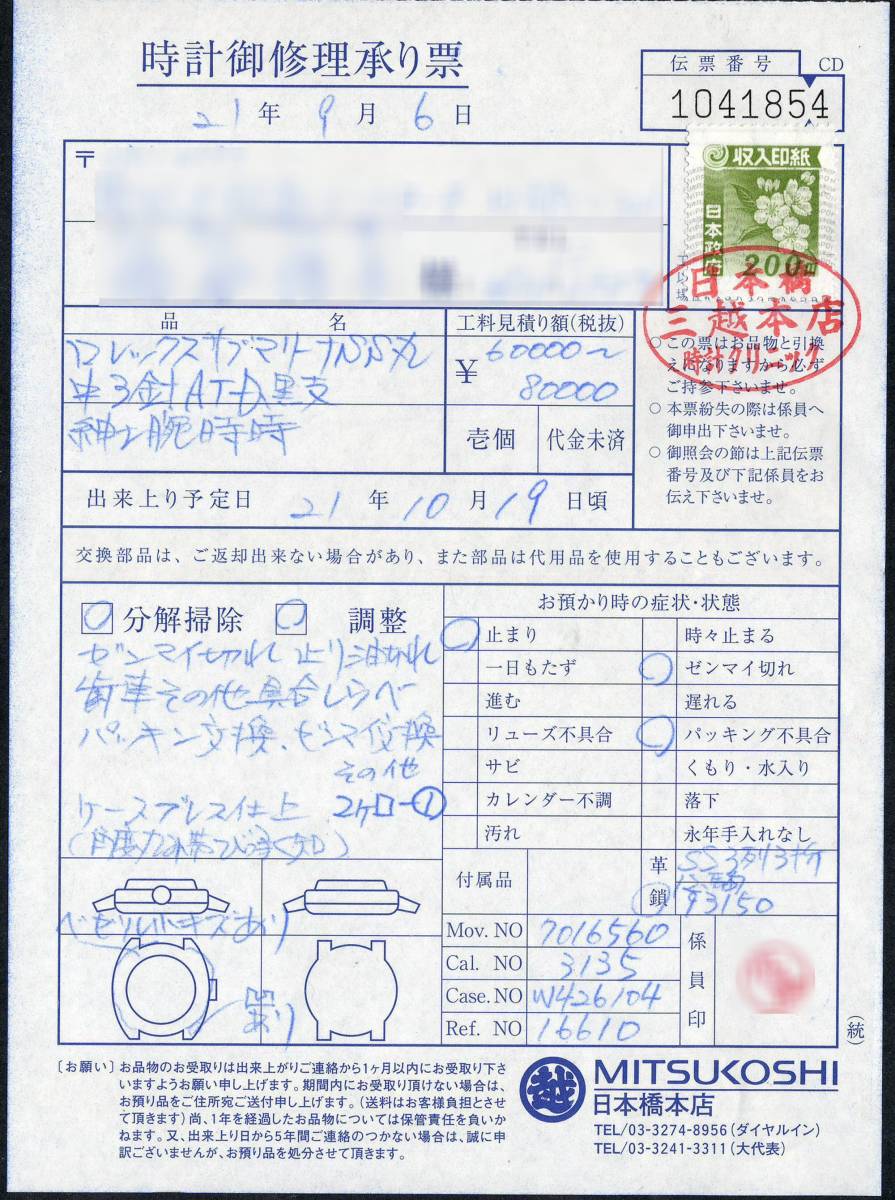 時計御修理承り票
21年 9月 6日
伝票番号 CD
1041854
収入印紙
日本政府
200円
〒
日本橋
三越本店
時計クリニック
品名
ロレックスサブマリーナSS丸
中3針AT-D.黒文
紳士腕時時
工料見積り額(税抜)
¥ 60000〜
80000
壱個 代金未済
○この票はお品物と引換
えになりますから必ず
ご持参下さいませ。
○本票紛失の際は係員へ
御申出下さいませ。
○御照会の節は上記伝票
番号及び下記係員をお
伝え下さいませ。
出来上り予定日 21年 10月 19日頃
交換部品は、ご返却出来ない場合があり、また部品は代用品を使用することもございます。
分解掃除 調整
ゼンマイ切れ 止り 油切れ
歯車その他具合しらべ
パッキン交換、ゼンマイ交換
その他
ケースブレス仕上 2ケ
お預かり時の症状・状態
止まり 時々止まる
一日もたず ゼンマイ切れ
進む 遅れる
リューズ不具合 パッキング不具合
サビ くもり・水入り
カレンダー不調 落下
汚れ 永年手入れなし
付属品 革 SS3列3折
鎖 93150
ベゼル小キズあり
あり
Mov. NO 7016560
Cal. NO 3135
Case. NO W426104
Ref. NO 16610
係員印
(統)
〔お願い〕お品物のお受取りは出来上がりご連絡から1ヶ月以内にお受取り下さ
いますようお願い申し上げます。期間内にお受取り頂けない場合は、
お預り品をご住所宛ご送付申し上げます。(送料はお客様負担とさせ
て頂きます)尚、1年を経過したお品物については保管責任を負いか
ねます。又、出来上り日から5年間ご連絡のつかない場合は、誠に申
訳ございませんが、お預り品を処分させて頂きます。
越 MITSUKOSHI
日本橋本店
TEL/03-3274-8956(ダイヤルイン)
TEL/03-3241-3311(大代表)